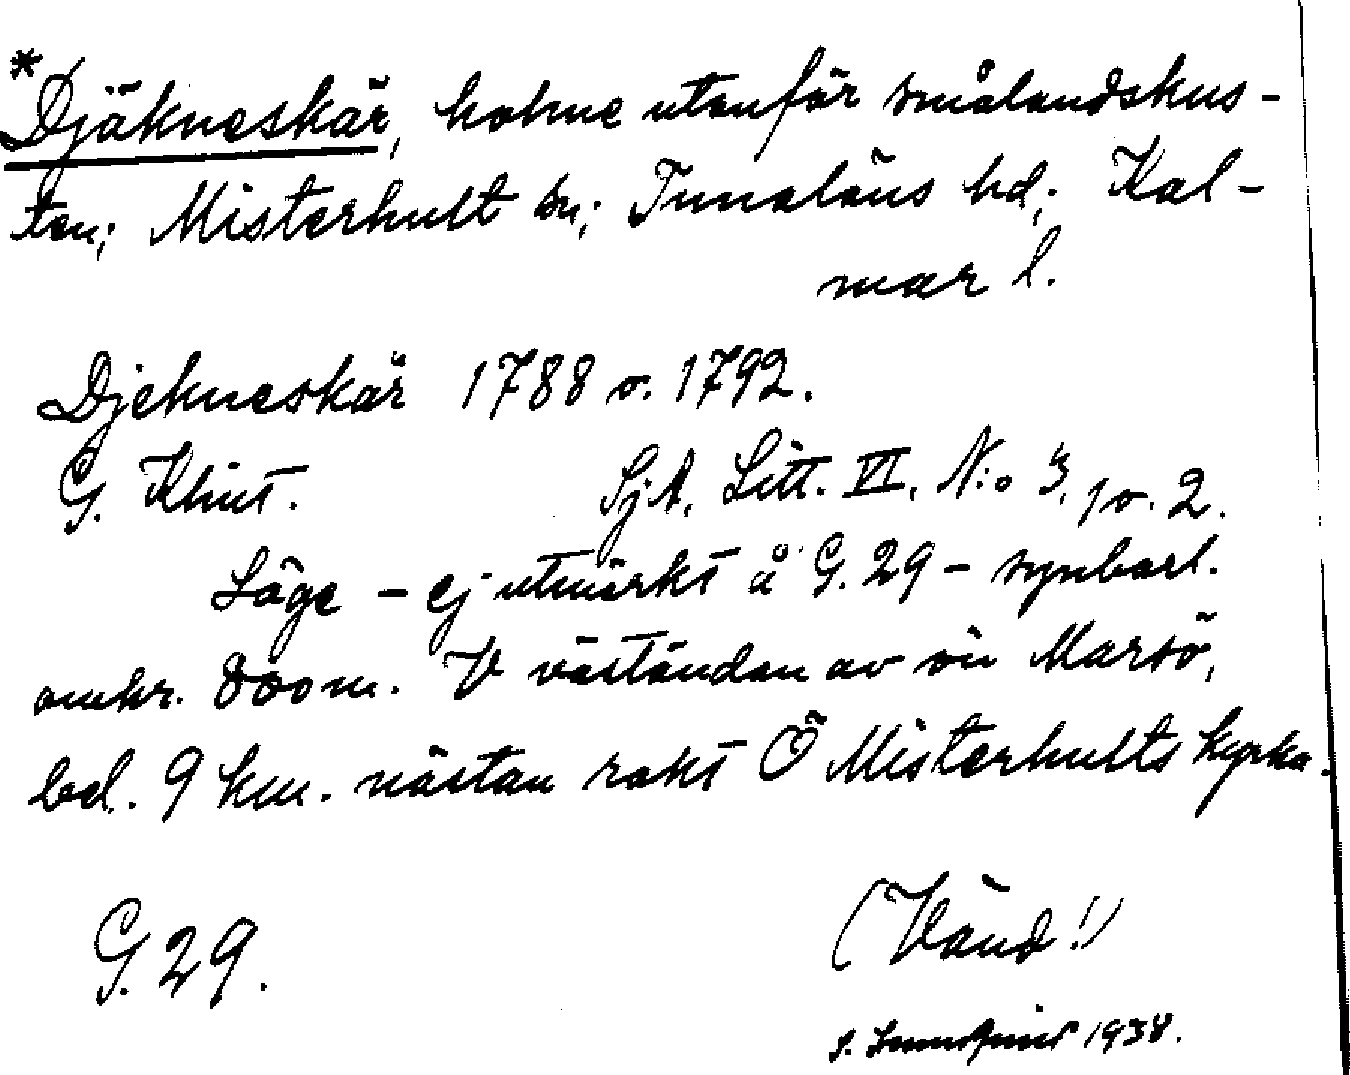 *Djäkneskär, holme utanför smålandskus-
ten; Misterhult sn; Tunaläns hd; Kal-
mar l.
Djekneskär 1788 o. 1792.
G. Klint. SjA, Litt. VI, N:o 3, 1 o. 2.
Läge - ej utmärkt å G. 29 - synbarl.
omkr. 800 m. V väständan av ön Marsö,
bel. 9 km. nästan rakt Ö Misterhults kyrka.
G. 29.
(Vänd!)
1938.